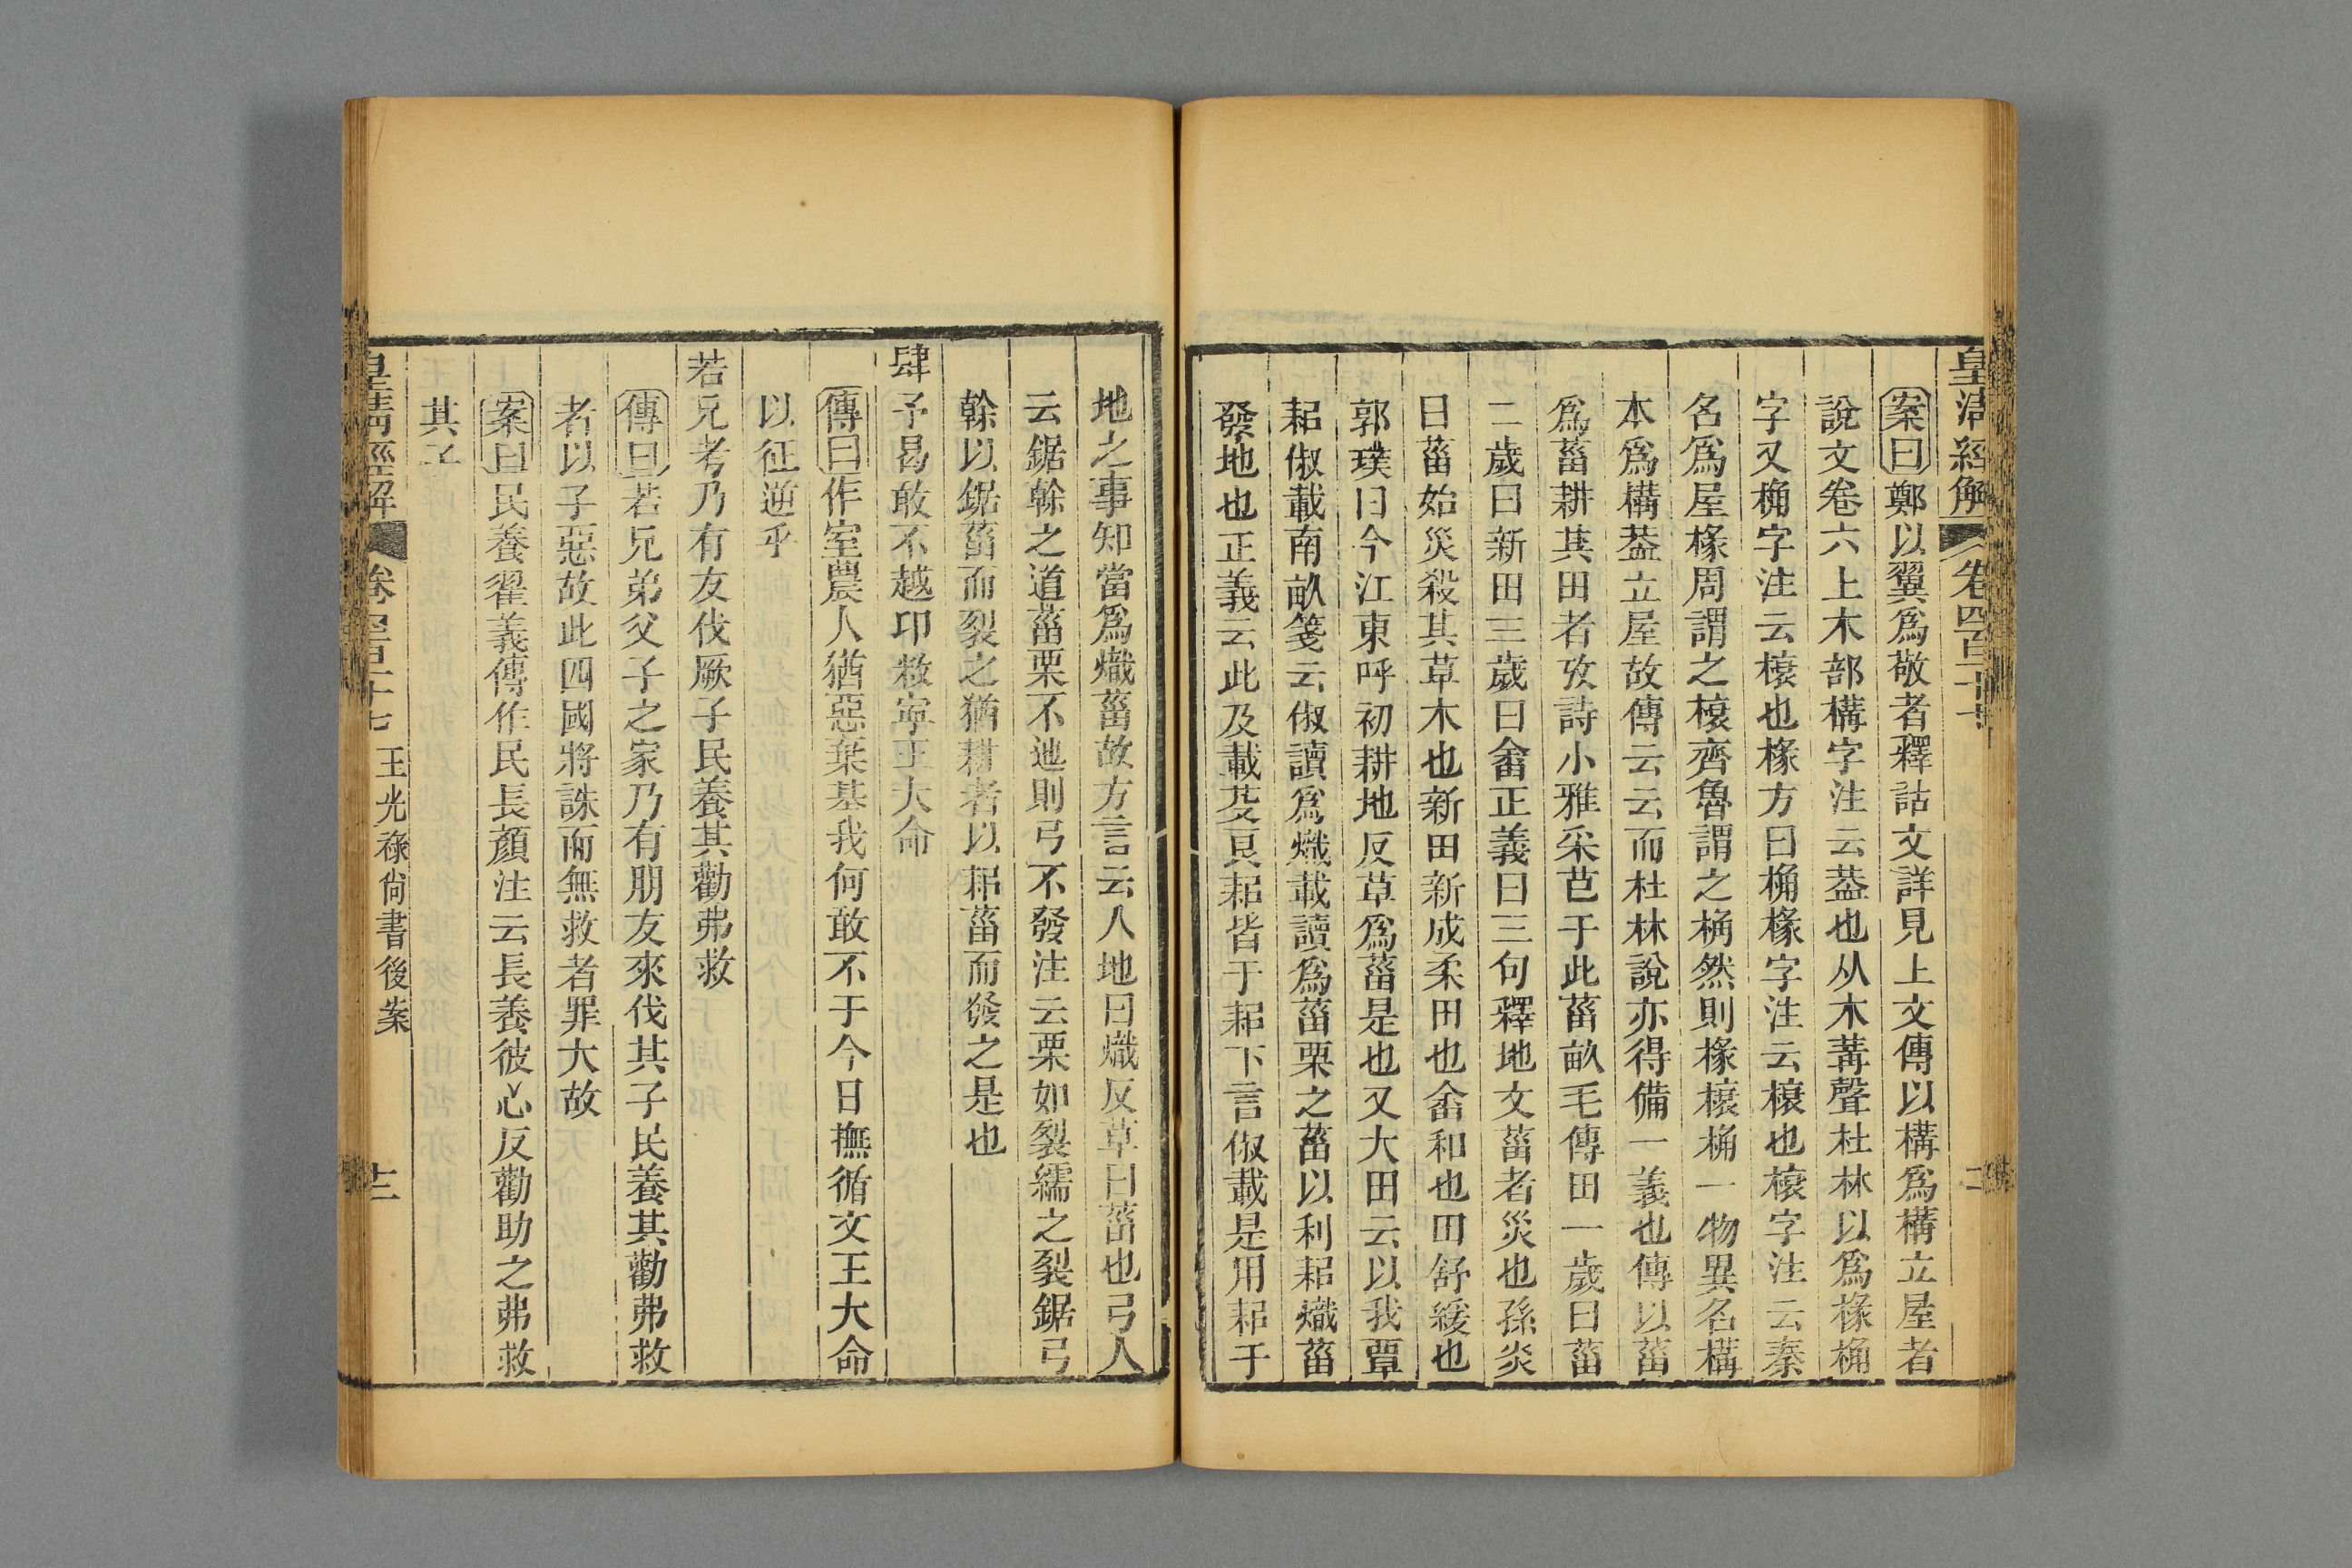 皇清經解 卷四百二十七 二
案曰鄭以翼爲敬者釋詁文詳見上文傳以構爲構立屋者
說文卷六上木部構字注云葢也从木冓聲杜林以爲椽桷
字又桷字注云榱也椽方曰桷椽字注云榱也榱字注云秦
名爲屋椽周謂之榱齊魯謂之桷然則椽榱桷一物異名構
本爲構葢立屋故傳云云而杜林說亦得備一義也傳以菑
爲菑耕其田者攷詩小雅采芑于此菑畝毛傳田一歲曰菑
二歲曰新田三歲曰畬正義曰三句釋地文菑者災也孫炎
曰菑始災殺其草木也新田新成柔田也畬和也田舒緩也
郭璞曰今江東呼初耕地反草爲菑是也又大田云以我覃
耜俶載南畝箋云俶讀爲熾載讀爲菑栗之菑以利耜熾菑
發地也正義云此及載芟良耜皆于耜下言俶載是用耜于
地之事知當爲熾菑故方言云入地曰熾反草曰菑也弓人
云鋸榦之道菑栗不迆則弓不發注云栗如裂繻之裂鋸弓
榦以鋸菑而裂之猶耕者以耜菑而發之是也
肆予曷敢不越卬敉寧王大命
傳曰作室農人猶惡棄基我何敢不于今日撫循文王大命
以征逆乎
若兄考乃有友伐厥子民養其勸弗救
傳曰若兄弟父子之家乃有朋友來伐其子民養其勸弗救
者以子惡故此四國將誅而無救者罪大故
案曰民養翟義傳作民長顏注云長養彼心反勸助之弗救
其子
皇清經解 卷四百二十七 王光祿尙書後案 十二